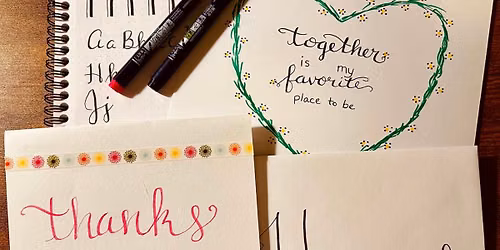 Aa Bb
Hh
Jj
together
is my
favorite
place to be
thanks